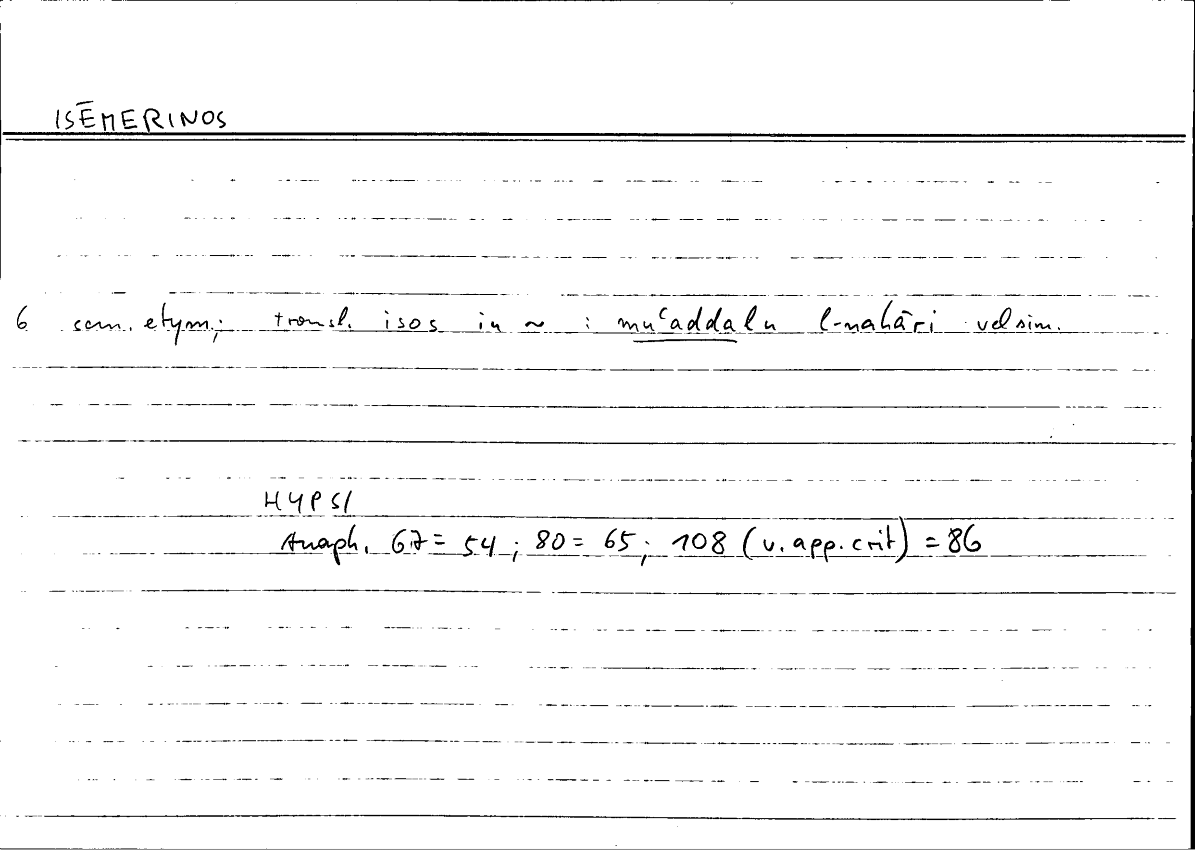 ISĒMERINOS
6 sem. etym.; transl. isos in ~ : muʿaddalu l-nahāri vel sim.
HYPSI
Anaph. 67 = 54 ; 80 = 65 ; 108 (v. app. crit) = 86